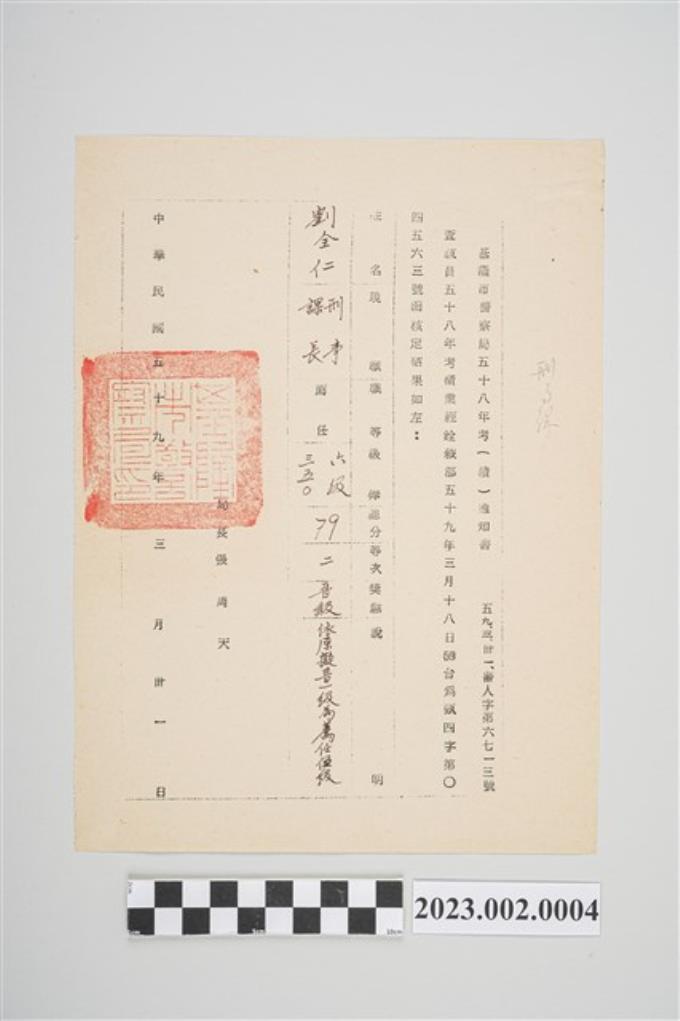 基隆市警察局五十八年考(績)通知書
五九、三、卅一、警人字第六七一三號
查該員五十八年考績業經銓敘部五十九年三月十八日(59)台為甄四字第〇
四五六三號函核定結果如左：
姓名 現職 職等級俸 總分 等次 獎懲 說明
劉全仁 刑事課長 薦任 六級 三五〇 79 二 晉級 依原擬晉一級為薦任伍級
局長張濤天
中華民國五十九年三月卅一日
2023.002.0004